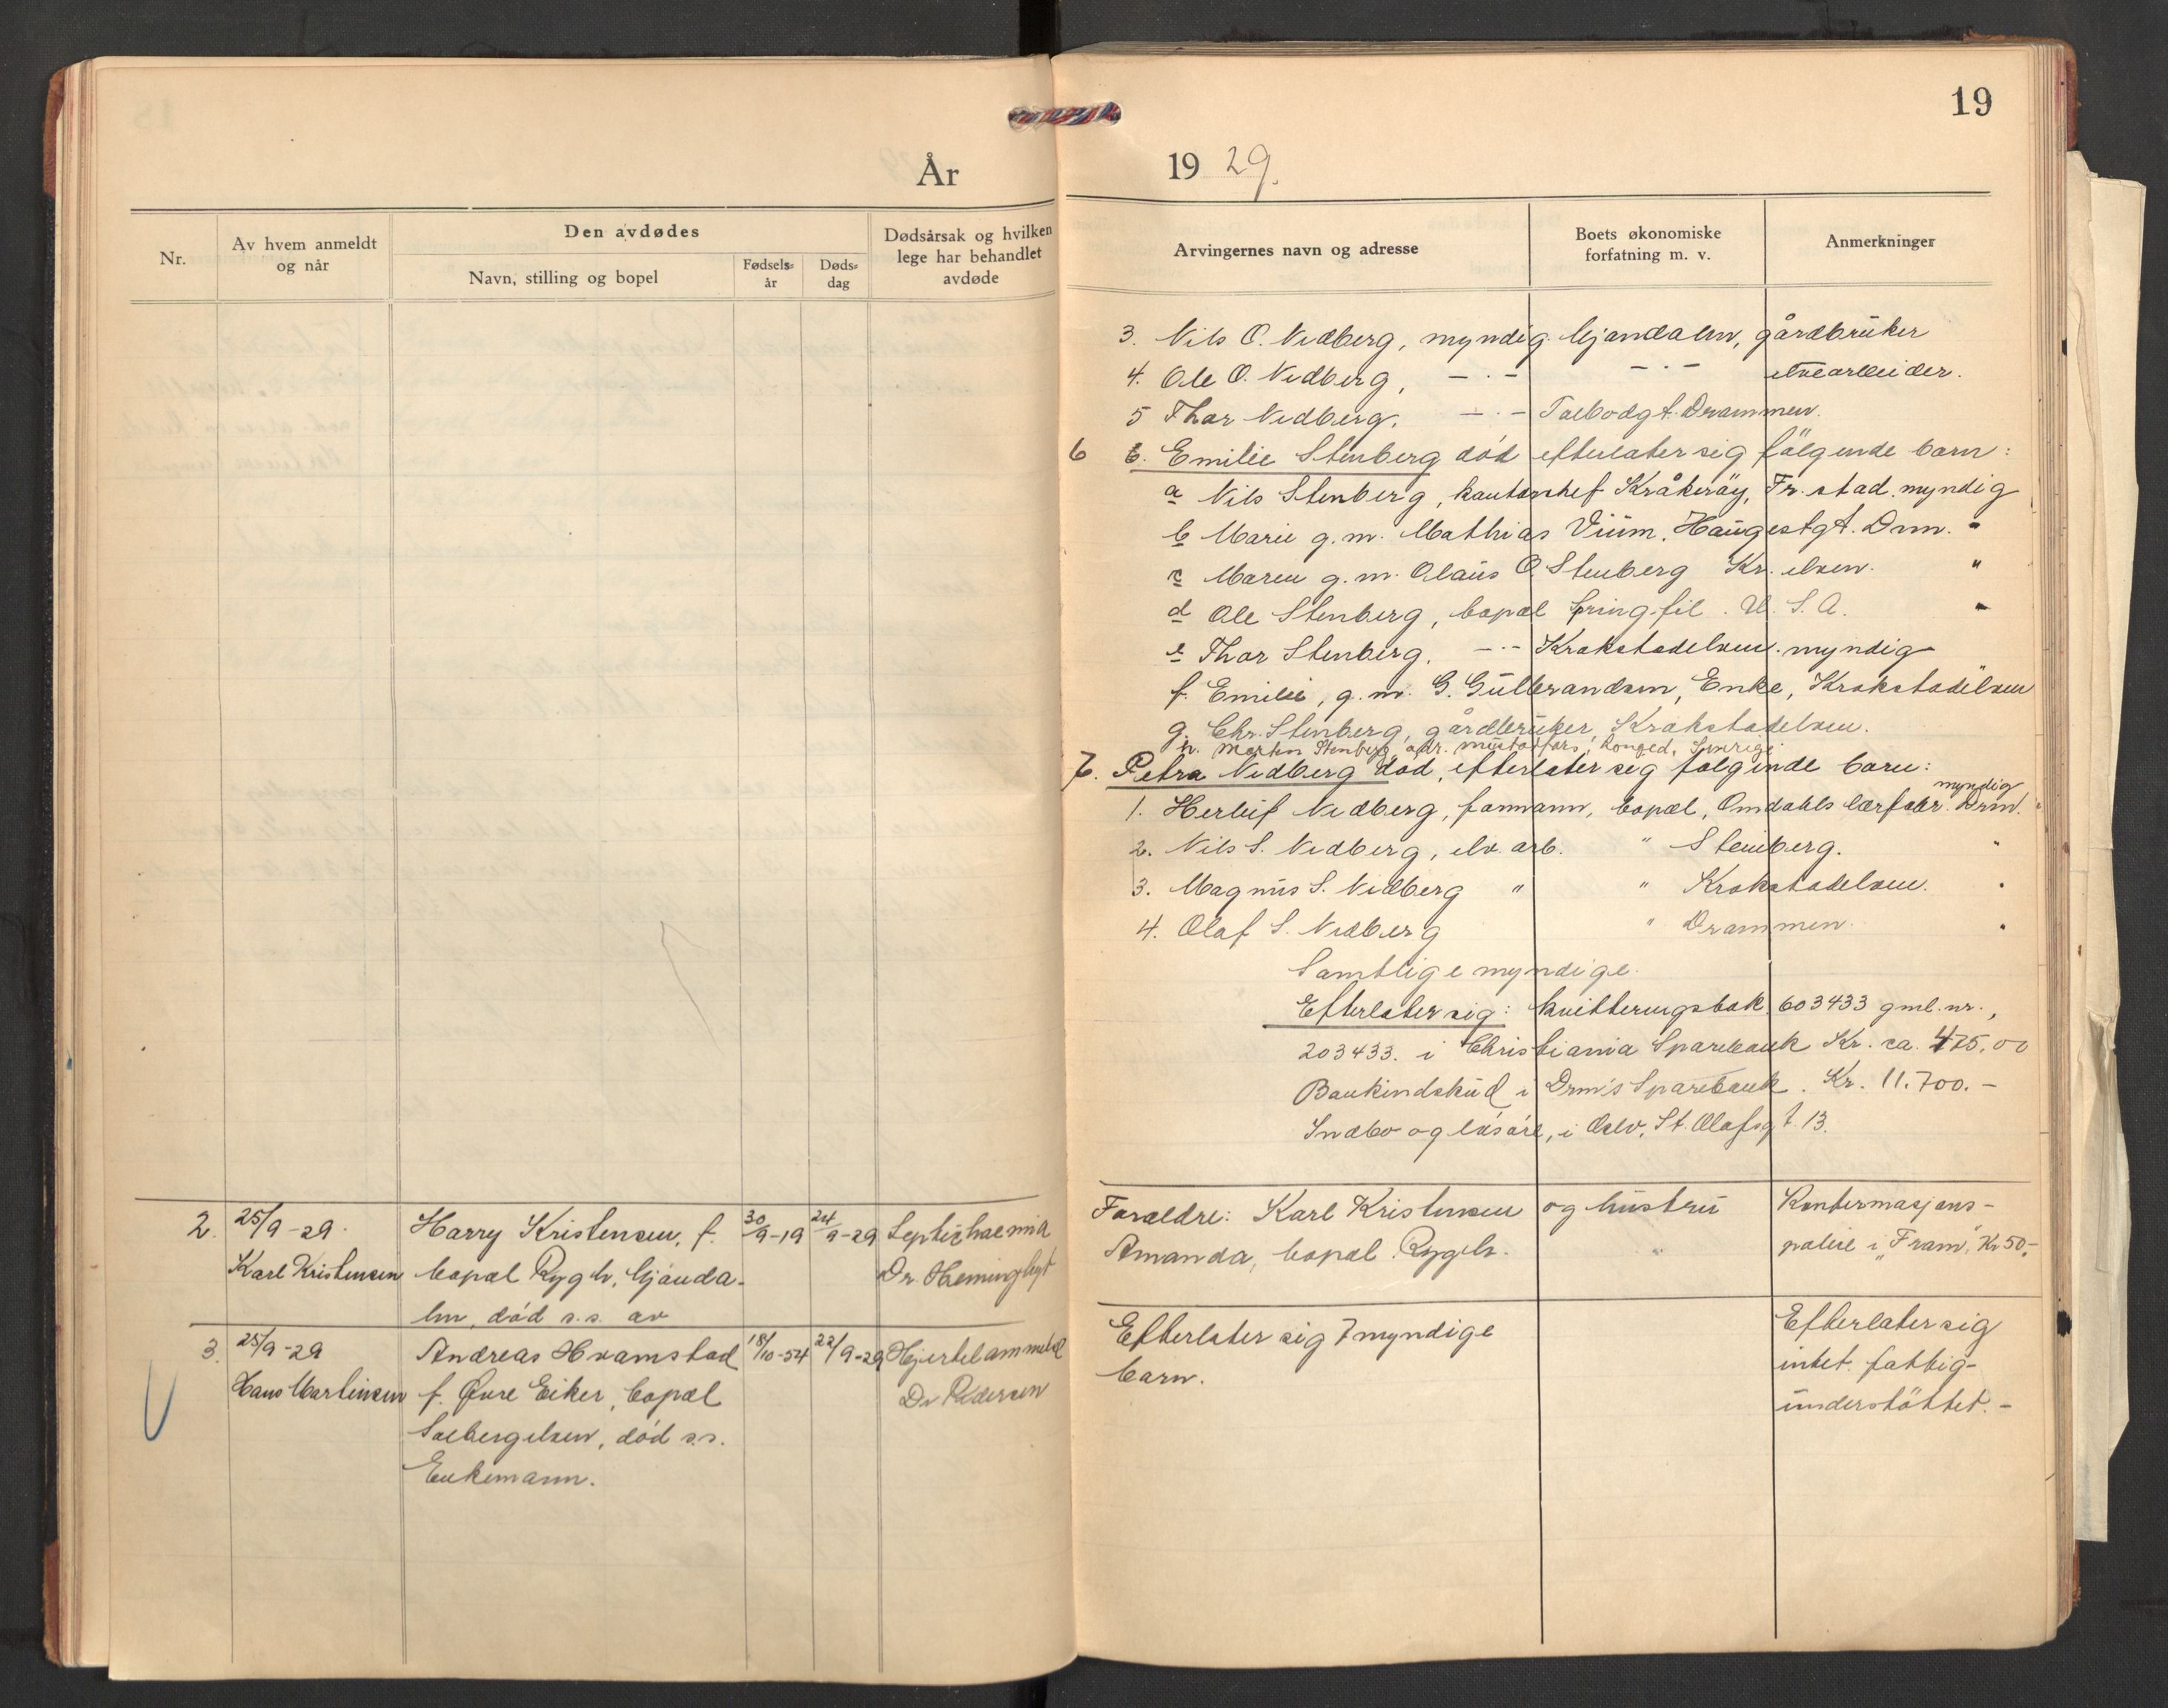 19
År
19 29.
Nr.
Av hvem anmeldt
og når
Den avdødes
Navn, stilling og bopel
Fødsels-
år
Døds-
dag
Dødsårsak og hvilken
lege har behandlet
avdøde
Arvingernes navn og adresse
Boets økonomiske
forfatning m. v.
Anmerkninger
3. Nils O. Nedberg, myndig Mjøndalen, gårdbruker
4. Ole O. Nedberg, — · — — · — elvearbeider.
5 Thor Nedberg. — · — Tolbodgt. Drammen.
6 6. Emilie Stenberg død efterlater sig følgende barn:
a Nils Stenberg, kontorchef Kråkerøy, Fr.stad. myndig
b Marie g.m. Mathias Vium, Haugestgt. Drm. "
c Maren g.m. Olaus O. Stenberg Kr. elven. "
d Ole Stenberg, bopæl Springfil. U. S. A. "
e Thor Stenberg, — · — Krokstadelven. myndig
f. Emilie, g.m. G. Gulbrandsen, Enke, Krokstadelven
g. Chr. Stenberg, gårdbruker, Krokstadelven.
h. Morten Stenberg, adr. Sverige.
7. Petra Nedberg død, efterlater sig følgende barn:
myndig
1. Herleif Nedberg, formann, bopæl, Omdahls lærfabr. Drm. "
2. Nils S. Nedberg, elv. arb. " Stenberg. "
3. Magnus S. Nedberg " " Krokstadelven. "
4. Olaf S. Nedberg " Drammen. "
Samtlige myndige.
Efterlater sig: kvitteringsbok 603433 gml. nr.,
203433. i Christiania Sparebank Kr. ca. 475,00
Bankindskud i Drm's Sparebank. Kr. 11.700.-
Indbo og løsøre, i Oslo, St. Olafsgt. 13.
2. 25/9-29. Harry Kristensen, f. 30/9-19 24/9-29 Septichaemia
Karl Kristensen bopæl Rygh, Mjønda- Dr. Heminghyt
len, død s.s. av
Foreldre: Karl Kristensen og hustru
Amanda, bopæl Rygh. "
Konfermasjons-
polise i "Fram", Kr 50,-
3. 25/9-29 Andreas Hramstad 18/10-54 22/9-29 Hjertelammelse
Hans Martinsen f. Øvre Eiker, bopæl Dr Pedersen
Solbergelven, død s.s.
Enkemann.
Efterlater sig 7 myndige
barn.
Efterlater sig
intet. fattig-
understøttet.-